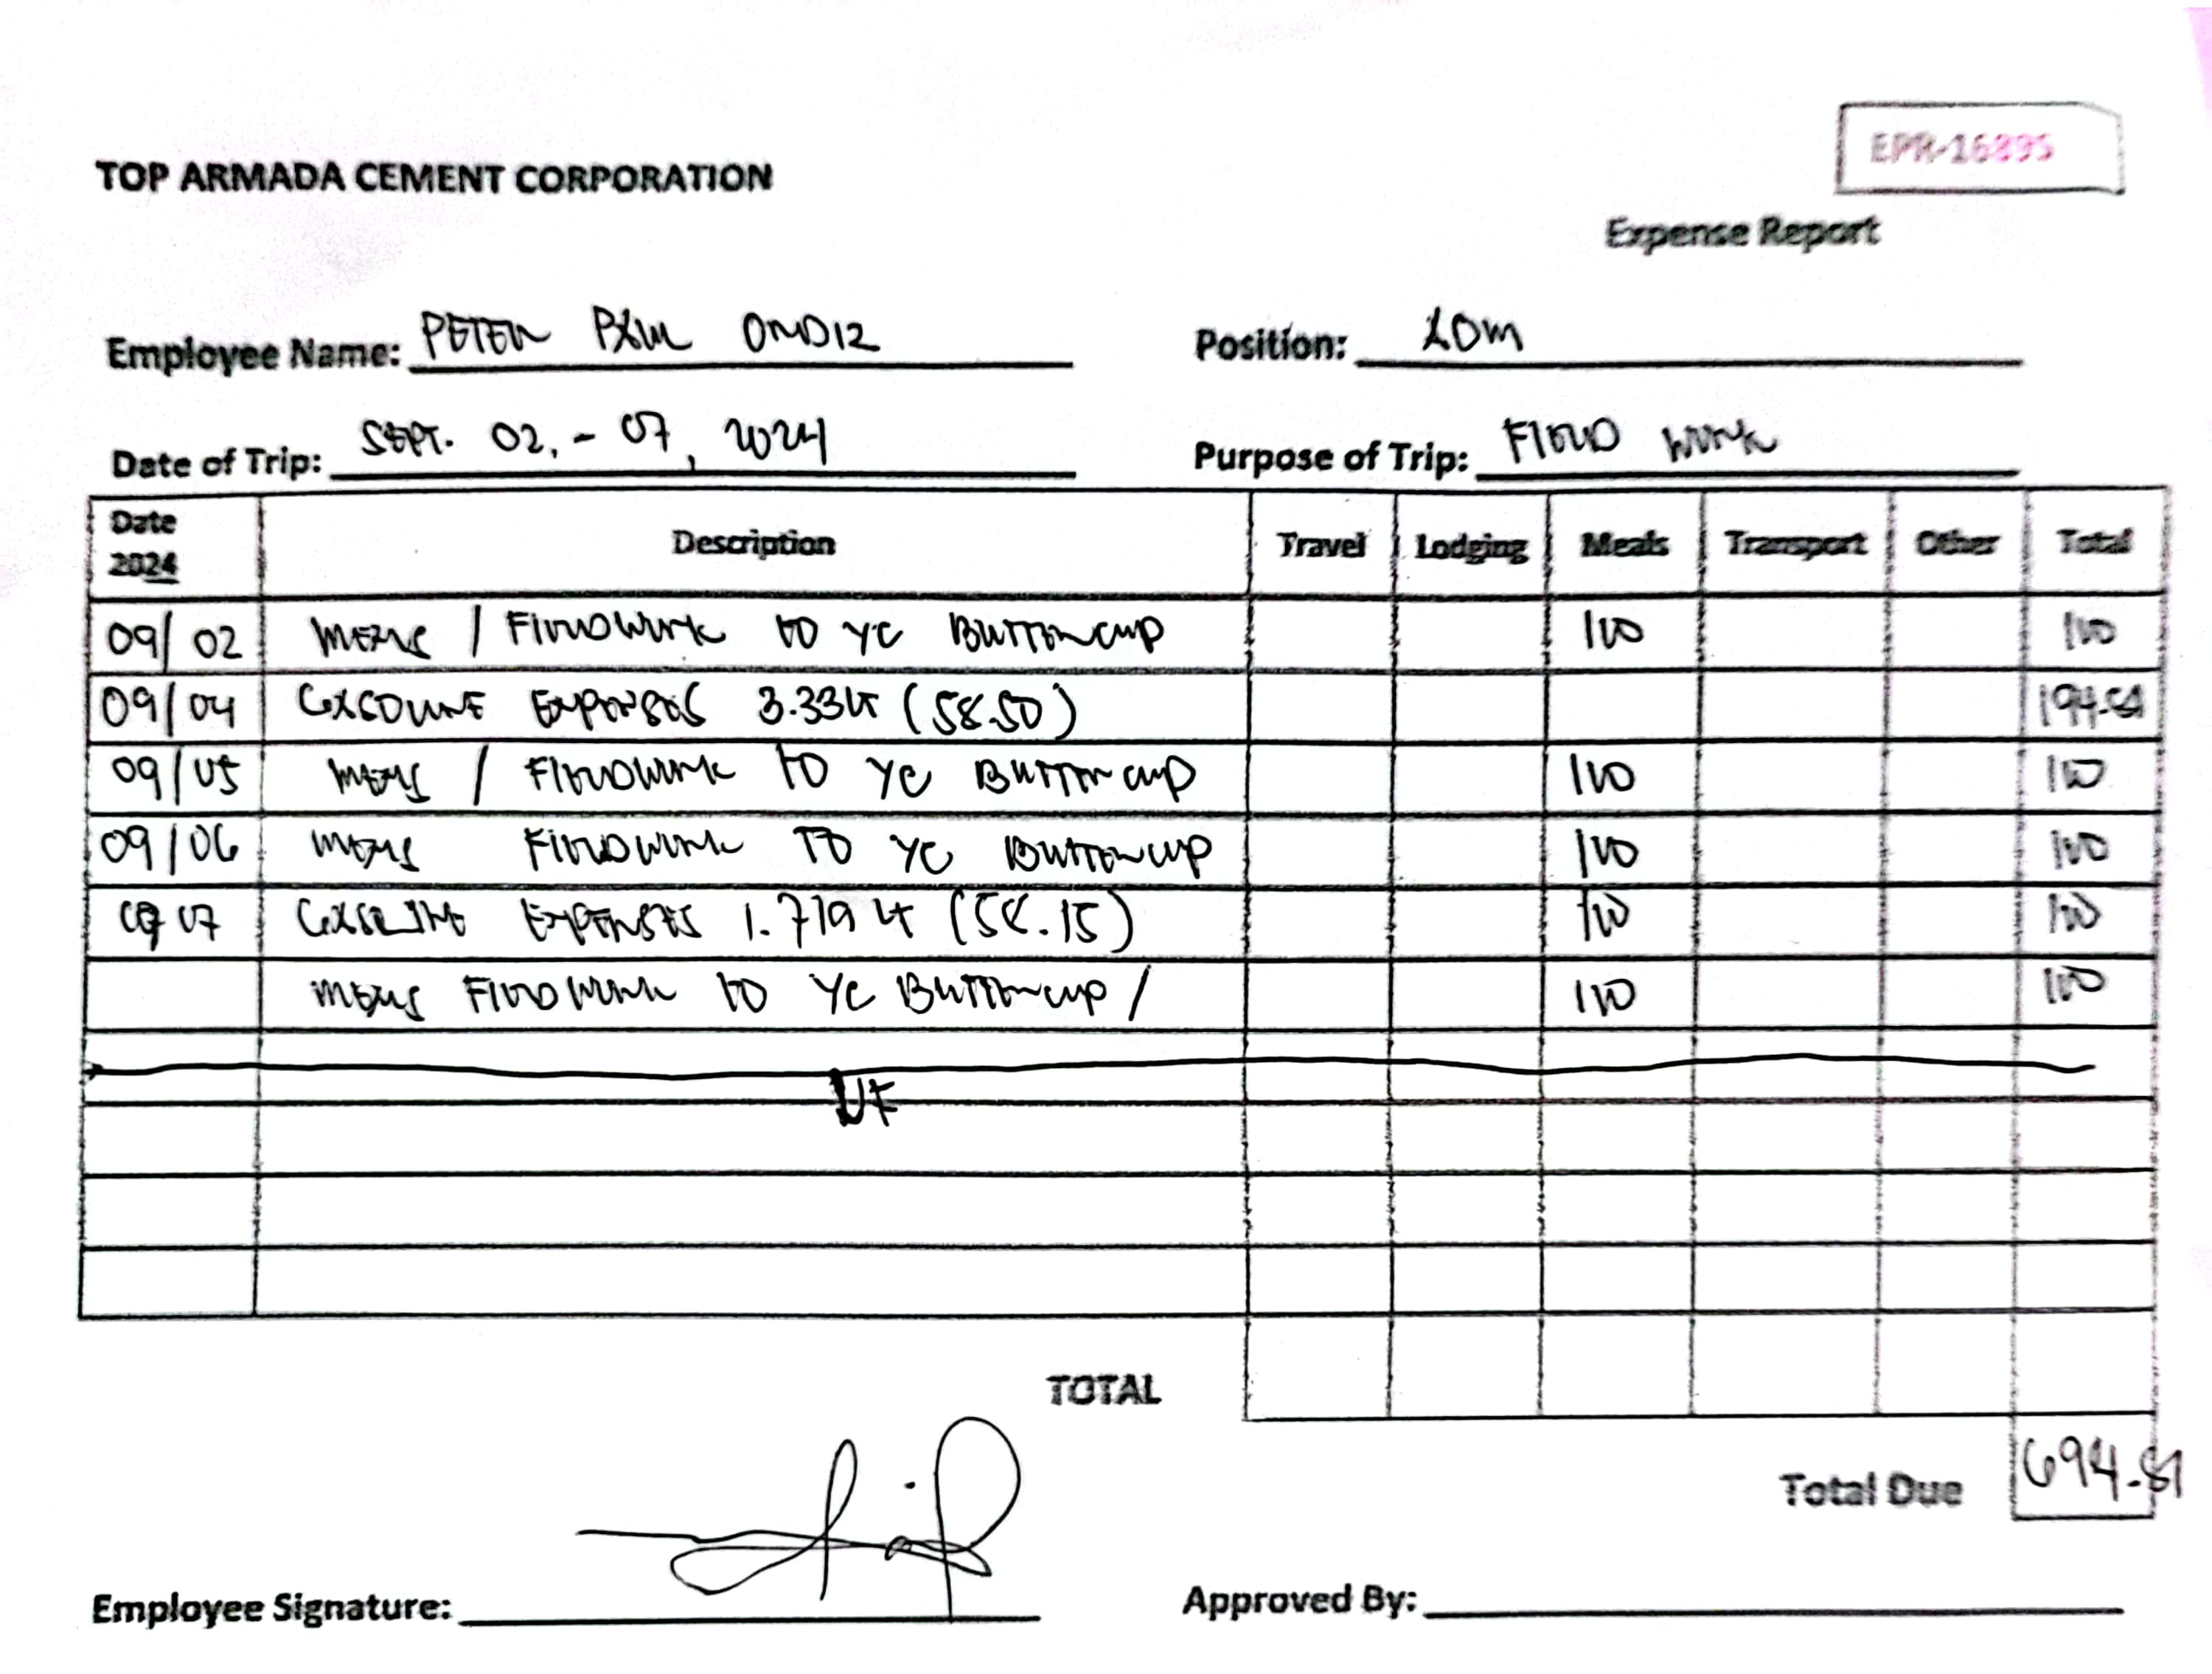 EPR-16895
TOP ARMADA CEMENT CORPORATION
Expense Report
Employee Name: PETER PAUL Position:
Date of Trip: SEPT. 02, - 07, 2024 Purpose of Trip: FIELD WORK
Date 2024 Description Travel Lodging Meals Transport Other Total
09/02 MEALS / FIELDWORK TO YC BUTTERCUP 100 100
09/04 GASOLINE EXPENSES 3.33 LT (58.50) 194.81
09/05 MEALS / FIELDWORK TO YC BUTTERCUP 100 100
09/06 MEALS FIELDWORK TO YC BUTTERCUP 100 100
09 07 GASOLINE EXPENSES 1.719 LT (58.15) 100 100
MEALS FIELDWORK TO YC BUTTERCUP / 100 100
TOTAL
Total Due 694.81
Employee Signature: Approved By: